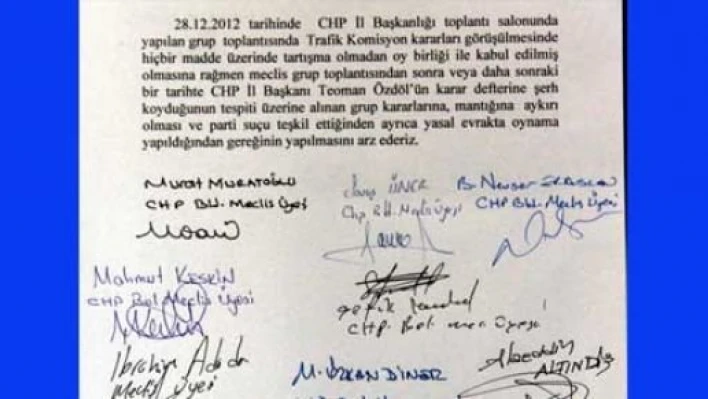 28.12.2012 tarihinde CHP İl Başkanlığı toplantı salonunda
yapılan grup toplantısında Trafik Komisyon kararları görüşülmesinde
hiçbir madde üzerinde tartışma olmadan oy birliği ile kabul edilmiş
olmasına rağmen meclis grup toplantısından sonra veya daha sonraki
bir tarihte CHP İl Başkanı Teoman Özdöl'ün karar defterine şerh
koyduğunun tespiti üzerine alınan grup kararlarına, mantığına aykırı
olması ve parti suçu teşkil ettiğinden ayrıca yasal evrakta oynama
yapıldığından gereğinin yapılmasını arz ederiz.
Murat MURATOĞLU
CHP Bld. Meclis Üyesi
ÜNER
CHP Bld. Meclis Üyesi
B. Nevser
CHP Bld. Meclis Üyesi
Mahmut KESKİN
CHP Bel Meclis Üyesi
CHP. Bel. Üyesi
İbrahim
Meclis Üyesi
M. ÖZKAN DİNER
Alaeddin
ALTINDİŞ